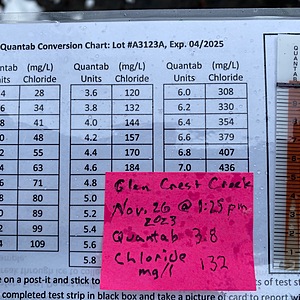 Quantab Conversion Chart: Lot #A3123A, Exp. 04/2025
ntab (mg/L) Quantab (mg/L) Quantab (mg/L)
its Chloride Units Chloride Units Chloride
4 28 3.6 120 6.0 308
6 34 3.8 132 6.2 330
8 41 4.0 144 6.4 354
0 48 4.2 157 6.6 379
2 55 4.4 170 6.8 407
4 63 4.6 184 7.0 436
6 71 4.8
8 80 5.0
0 89 5.2
2 99 5.4
4 109 5.6
5.8
Glen Crest Creek
Nov. 26 @ 1:25 pm
2023
Quantab 3.8
Chloride
mg/l 132
e on a post-it and stick to
ts of test st
completed test strip in black box and take a picture of card to report
QUANTAB